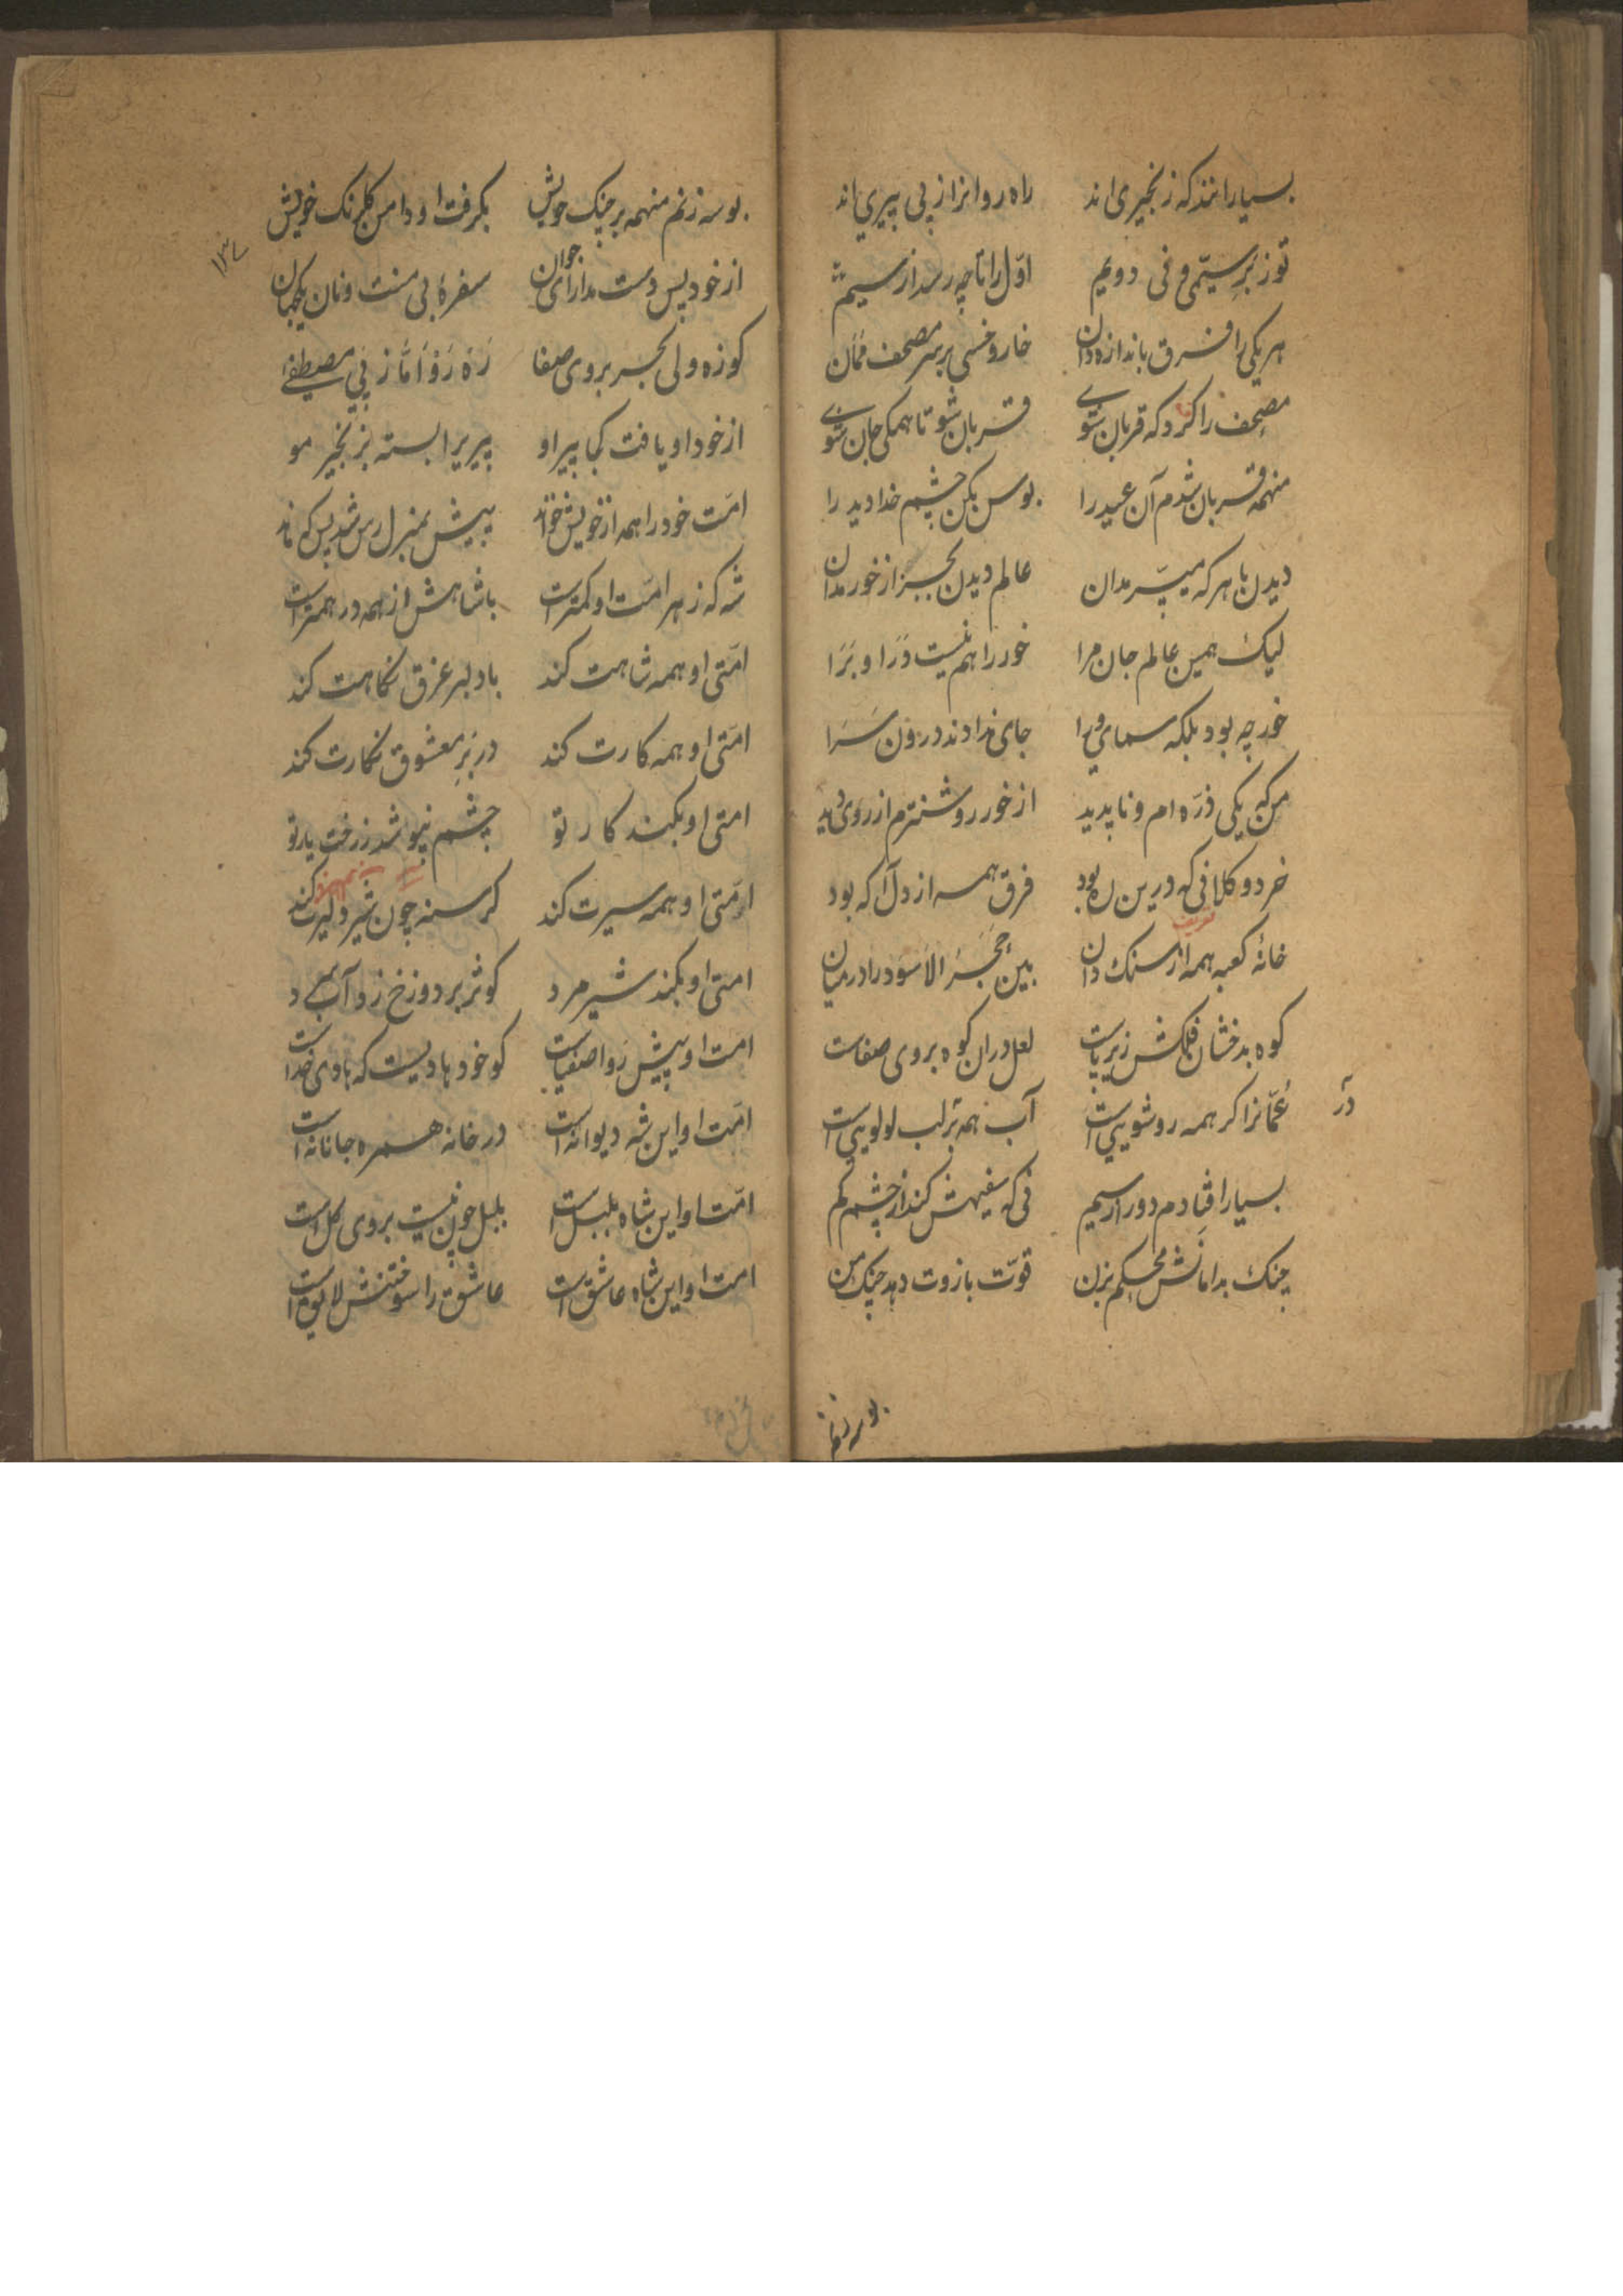 بسیارانند که زنجیری اند راه روانرا ز پی پیری اند
تو ز بر سیمی و فی دویم اول را تا چه رسد از سیم
هر یکی را فرق باندازه دان خار و خسی بر سر مصحف ممان
مصحف را کرد که قربان شوی قربان شو تا همکی جان شوی
منهمه قربان شدم آن عید را بوس بکن چشم خدا دید را
دیدن با هر که میسّر مدان عالم دیدن بجز از خور مدان
لیک همین عالم جان مرا خور را هم نیست درا و برا
خور چه بود بلکه سمای ورا جای ندادند درون سرا
من که یکی ذرّه ام و ناپدید از خور روشنترم از روی دید
خرد و کلانی که درین ره بود فرق همه از دل آکه بود
خانهٔ کعبه همه از سنک دان بین حجر الاسود را در میان
کوه بدخشان فلکش زیر پاست لعل دران کوه بروی صفاست
عمّانرا کر همه روشویی است آب همه بر لب لولویی است
در
بسیار افتادم دور از سیم فی که سفیهش کند از چشم کم
چنک بدامانش محکم بزن قوّت بازوت دهد چنک من
بوسه زنم
بوسه زنم منهمه بر چنک خویش بکرفت او دامن کلرنک خویش
از خود پس دست مدار ای جوان سفرهٔ بی منت و نان یکهان
کوزه ولی بحر بروی صفا ره رو اما ز پی مصطفی
از خود او یافت کجا پیر او پیر یرا بسته بزنجیر مو
امّت خود را همه از خویش خواند پیش بمنزل رس شد پس که ماند
شه که ز هر امّت او کمتر است با شاهش از همه در همتر است
امّتی او همه شاهت کند با دلبر غرق نکاهت کند
امّتی او همه کارت کند در بر معشوق نکارت کند
امتی او بکند کار تو چشم نپوشد ز رخت یار تو
امّتی او همه سیرت کند کرسنه چون شیر دلیرت کند
امتی او بکند شیر مرد کوثر بر دوزخ زد آب سرد
امت او پیش رو اصفیاست کو خود هادیست که هادی خداست
امّت او این شه دیوانه است در خانه همره جانانه است
امّت او این شاه بلبل است بلبل چون نیست بروی کل است
امت او این شاه عاشق است عاشق را سوختنش لایق است